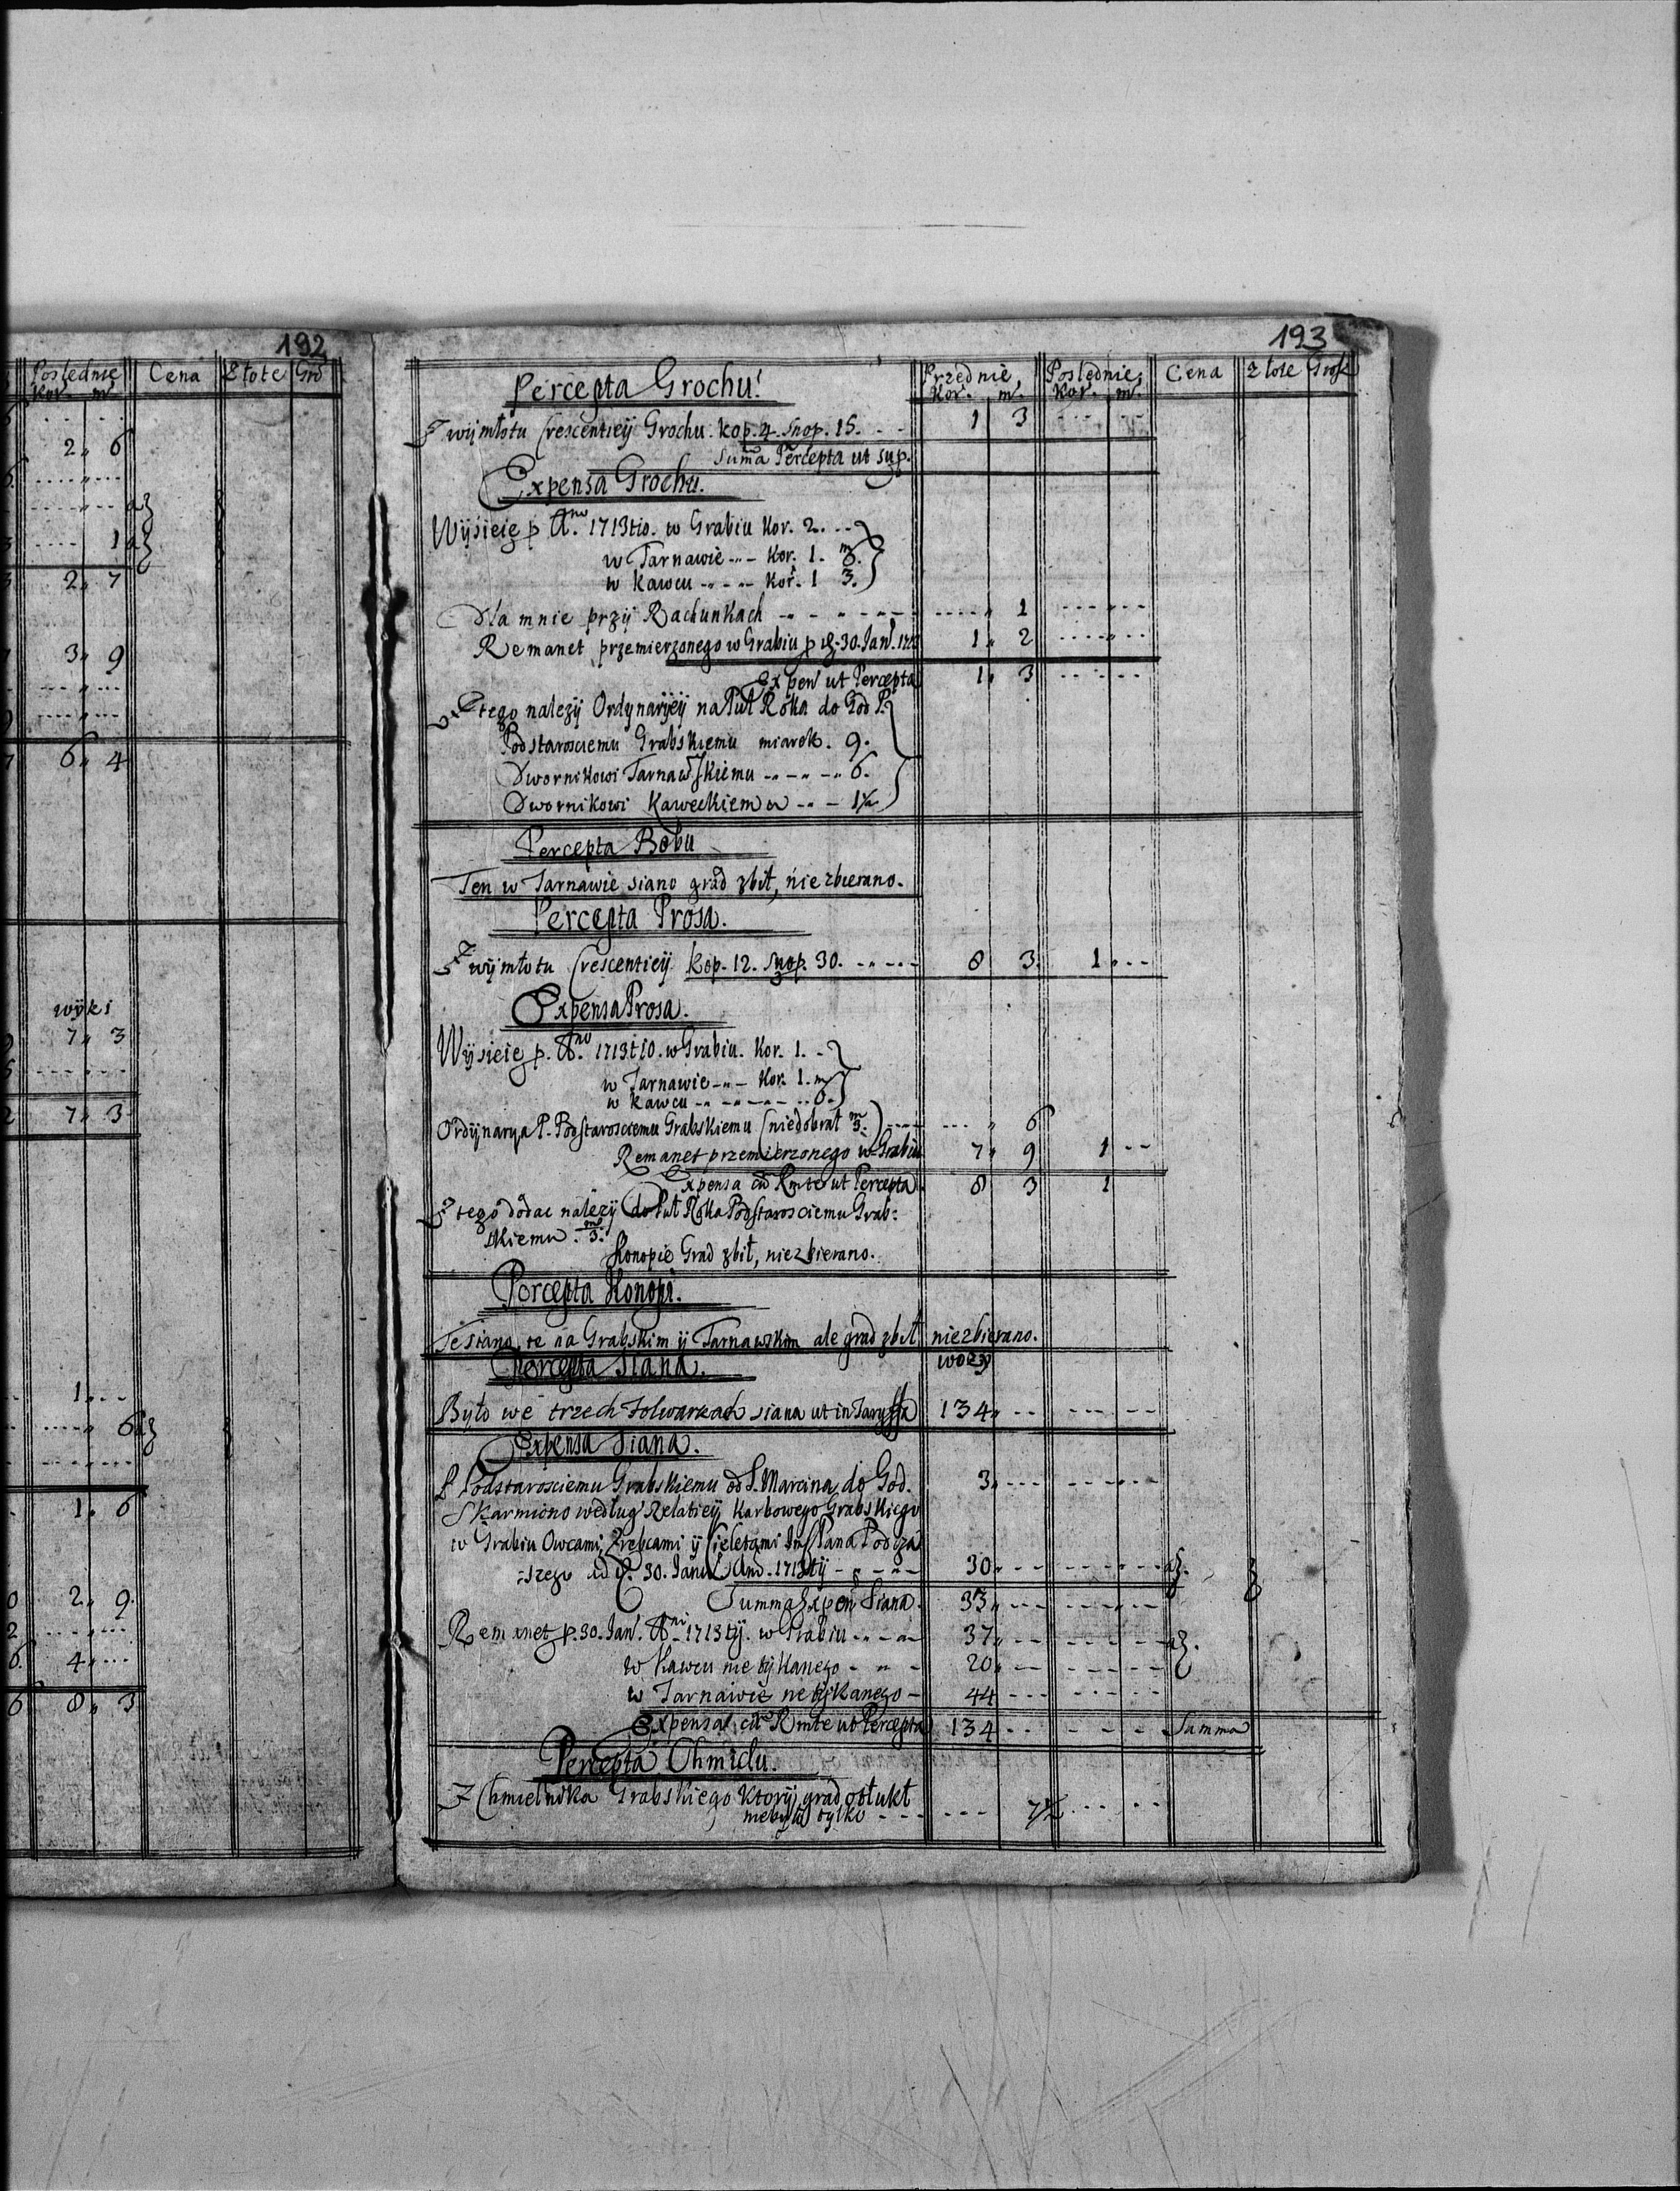 192
Poslednie Cena Złote Gro
Kor. m.
2 „ 6
1
2 „ 7
3 „ 9
6 „ 4
wyki
7 „ 3
7 „ 3
1 „
6
1 „ 6
2 „ 9
4 „
8 „ 3
193
Percepta Grochu. Przednie, Poslednie; Cena złote Gros
Kor. m. Kor. m.
Z wymłotu Crescentiey Grochu. kop. 4. Snop. 15. 1 3
Suma Percepta ut sup.
Expensa Grochu.
Wysieię p Ano. 1713tio. w Grabiu Kor. 2.
w Tarnawie Kor. 1. m 6.
w Kawcu Kor. 1 3.
Dla mnie przy Rachunkach 1
Remanet przemierzonego w Grabiu p d. 30. Jan. 1713 1 „ 2
Expen ut Percepta 1 „ 3
Z tego nalezy Ordynaryey na Puł Roka do God P.
Podstarosciemu Grabskiemu miarek. 9.
Dwornikowi Tarnawskiemu 6.
Dwornikowi Kaweckiemu 1½
Percepta Bobu
Ten w Tarnawie siano grad zbił, niezbierano.
Percepta Prosa.
Z wymłotu Crescentiey Kop. 12. Snop. 30. 8 3. 1 „
Expensa Prosa.
Wysieie p. Ano. 1713tio. w Grabiu. Kor. 1.
w Tarnawie Kor. 1. m
w Kawcu 6.
Ordynarya P. Podstarosciemu Grabskiemu (niedobrał m 3.) „ 6
Remanet przemierzonego w Grabiu 7 „ 9 1
Expensa cu Rmte ut Percepta 8 3 1
Z tego dodac nalezy do Puł Roka Podstarosciemu Grab:
skiemu. m 3.
Konopie Grad zbił, niezbierano.
Percepta Konopi.
Te siano, te na Grabskim y Tarnawskim ale grad zbił niezbierano.
Percepta Siana. wozy
Było we trzech Folwarkach siana ut in Taryffa 134 „
Expensa Siana.
P Podstarosciemu Grabskiemu od S. Marcina do God. 3 „
Skarmiono według Relatiey Karbowego Grabskiego
w Grabiu Owcami, Zrebcami y Cielętami Pana Podcza
szego ad d. 30. Jan. Ano. 1713ty 30
Summa Expen Siana. 33 „
Remanet p. 30. Jan. Ani 1713ty. w Grabiu 37 „
w Kawcu nie tykanego 20 „
w Tarnawie netykanego 44
Expensa cu Rmte ut Percepta 134 Summa
Percepta Chmielu.
Z Chmielnika Grabskiego ktory grad otłukł
nebyło tylko 7½